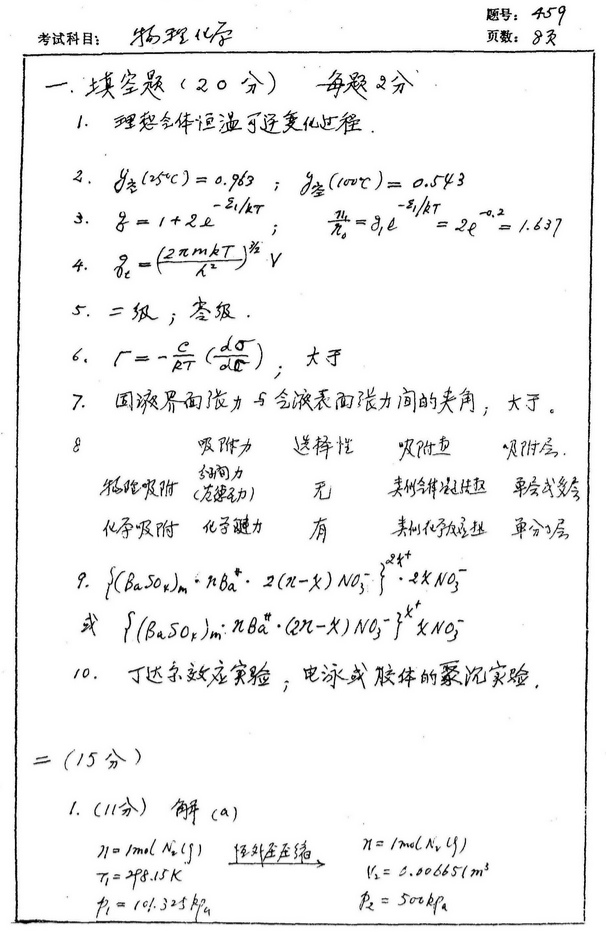 题号: 459
考试科目: 物理化学
页数: 8页
一. 填空题 (20分) 每题2分
1. 理想气体恒温可逆变化过程.
2. y空(25℃) = 0.963 ; y空(100℃) = 0.543
3. q = 1 + 2e^{-ε₁/kT} ; n₁/n₀ = g₁e^{-ε₁/kT} = 2e^{-0.2} = 1.637
4. qt = (2πmkT/h²)^{3/2} V
5. 二级 ; 零级.
6. Γ = -c/RT (dσ/dc) ; 大于
7. 固液界面张力与气液表面张力间的夹角; 大于。
8 吸附力 选择性 吸附热 吸附层.
物理吸附 分子间力(范德华力) 无 类似气体凝结热 单层或多层
化学吸附 化学键力 有 类似化学反应热 单分子层
9. {(BaSO₄)m · nBa⁺⁺ · 2(n-x)NO₃⁻}^{2x+} · 2xNO₃⁻
或 {(BaSO₄)m · nBa⁺⁺ · (2n-x)NO₃⁻}^{x+} xNO₃⁻
10. 丁达尔效应实验 ; 电泳或胶体的聚沉实验.
二 (15分)
1. (11分) 解 (a)
n = 1mol N₂(g) 恒外压压缩 n = 1mol N₂(g)
T₁ = 298.15K V₂ = 0.006651m³
p₁ = 101.325kPa p₂ = 500kPa